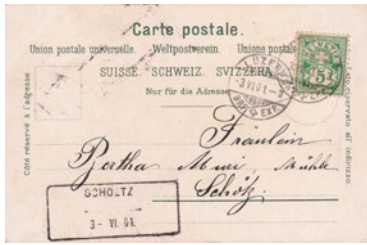 Carte postale.
Union postale universelle. Weltpostverein. Unione postale
SUISSE. SCHWEIZ. SVIZZERA.
Nur für die Adresse.
Côté réservé à l'adresse
LUZERN
-3.VI.01.-
BRF. EXP.
5
Fräulein
Bertha Muri, Mühle
Schötz.
SCHOETZ
3- VI. 01.